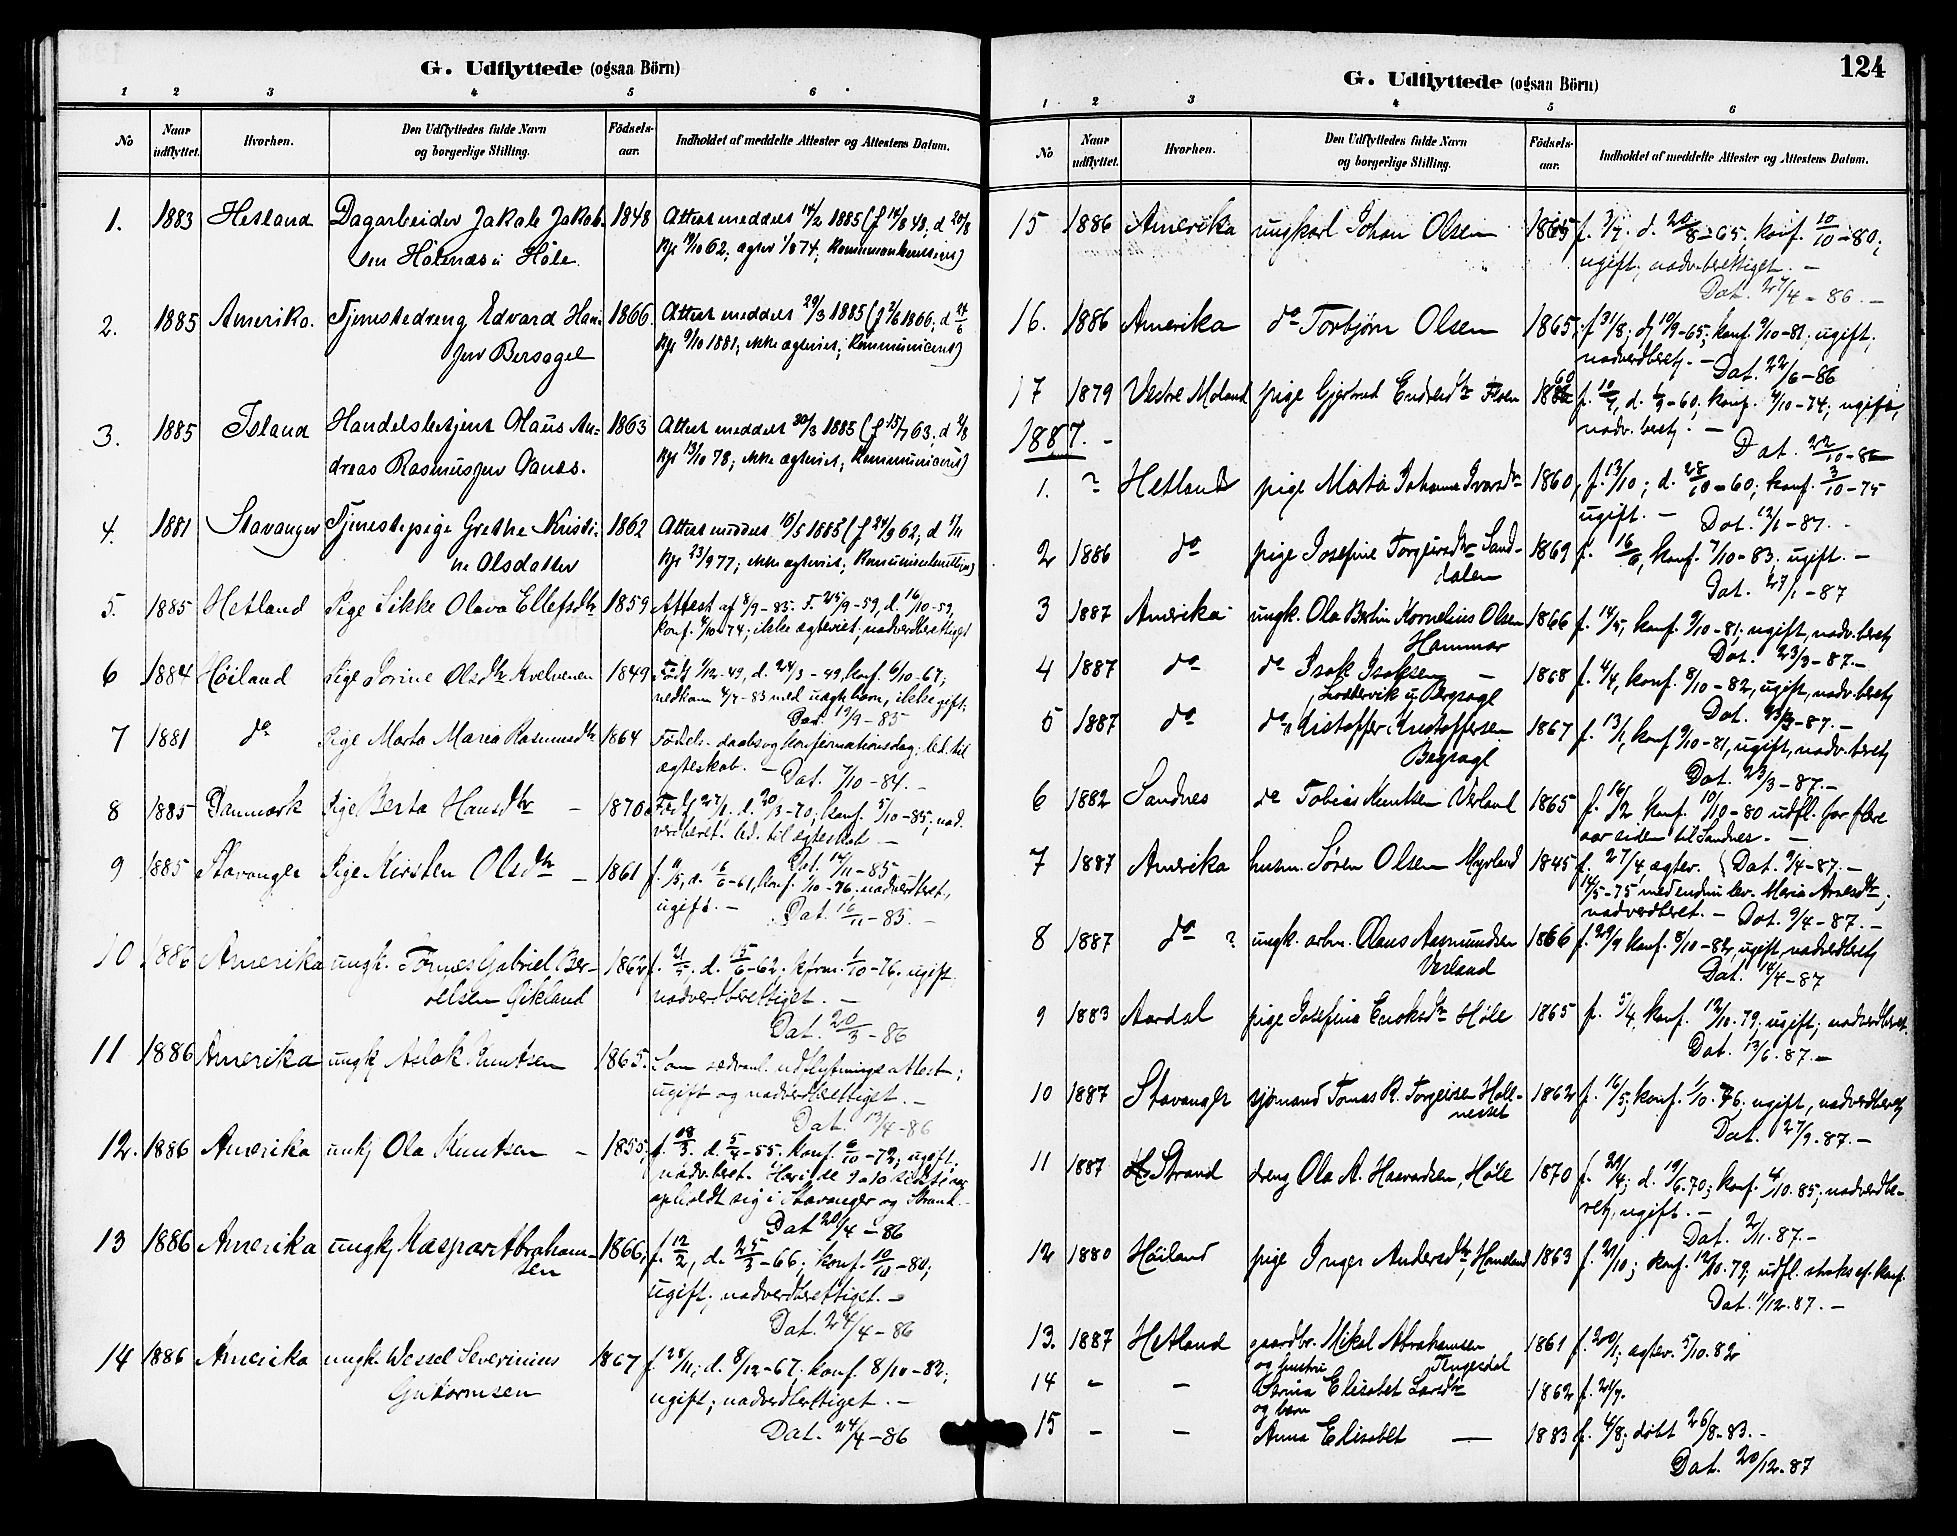 G. Udflyttede (ogsaa Börn)
1 2 3 4 5 6
No Naar udflyttet. Hvorhen. Den Udflyttedes fulde Navn og borgerlige Stilling. Födsels-aar. Indholdet af meddelte Attester og Attestens Datum.
1. 1883 Hetland Dagarbeider Jakob Jakob- 1848 Attest meddelt 14/2 1885 (f 14/8 48, d 20/8
sen Holenæs i Höle Kft 10/10 62; ægtev. 1/8 74; Kommunionbereettiget)
2. 1885 Amerika. Tjenestedreng Edvard Han- 1866. Attest meddelt 29/3 1885 (f 2/6 1866, d 24/6
sen Bersagel Kft 9/10 1881; ikke ægteviet; Kommuniceret)
3. 1885 Island Handelsbetjent Olaus An- 1863 Attest meddelt 30/3 1885 (f 15/7 63, d 2/8
dreas Rasmussen Vanes. Kft 13/10 78; ikke ægteviet; Kommuniceret)
4. 1881 Stavanger Tjenestepige Grethe Kristi- 1862 Attest meddelt 15/5 1885 (f 24/9 62, d 9/11
ne Olsdatter Kft 23/9 77; ikke ægteviet;
5. 1885 Hetland Pige Sikke Olava Ellefsdtr 1859 Attest af 8/9-85. F. 25/9-59, d. 16/10-59,
konf. 4/10-74; ikke ægteviet; nadverdberettiget
6 1884 Höiland Pige Torine Olsdtr Kvelvenen 1849 Født 9/12-49, d. 24/3-49, konf. 6/10-67;
nedkom 4/7-83 med uægte barn, ikke gift.
Dat. 19/9-85
7 1881 do Pige Marta Maria Rasmusdtr 1864 Födsels- daabs og konfirmationsdag; led. til
ægteskab. - Dat. 7/10-84. -
8 1885 Danmark Pige Berta Hansdtr - 1870 Født 27/1, d. 20/3-70; konf. 5/10-85; nad-
verdberet. led. til ægteskab -
Dat. 14/11-85
9 1885 Stavanger Pige Kirsten Olsdtr - 1861 f. 11/5, d. 16/6-61, konf. 1/10-76. nadverdberet,
ugift. - Dat. 16/11-85. -
10 1886 Amerika ungk. Tönnes Gabriel Ber- 1862 f. 21/5. d. 15/6-62. kfrm. 1/10-76, ugift,
Gikland nadverdberettiget. -
Dat. 20/3-86
11 1886 Amerika ungk Aslak Knutsen 1865. Som sedvanl. udflytningsattest;
ugift og nadverdberettiget. -
Dat. 13/4-86
12. 1886 Amerika unkg Ola Knutsen - 1855, f. 18/3. d. 5/4-55. konf. 6/10-72, ugift,
nadv.beret. Har i de 9 a 10 sidste aar
opholdt sig i Stavanger og Strand. -
Dat 20/4-86
13 1886 Amerika ungkj Kaspar Abraham- 1866, f. 12/2, d. 25/3-66; konf. 10/10-80;
sen ugift; nadverdberettiget. -
Dat. 24/4-86
14 1886 Amerika ungk. Wessel Severinius 1867 f. 28/11; d. 8/12-67. konf. 8/10-82;
Gutormsen ugift; nadverdberettiget. -
Dat. 24/4-86
124
G. Udflyttede (ogsaa Börn)
1 2 3 4 5 6
No Naar udflyttet. Hvorhen. Den Udflyttedes fulde Navn og borgerlige Stilling. Födsels-aar. Indholdet af meddelte Attester og Attestens Datum.
15 1886 Amerika ungkarl Johan Olsen 1865 f. 3/7. d. 20/8-65; konf. 10/10-80;
ugift; nadv.berettiget. -
Dat. 27/4-86. -
16. 1886 Amerika do Torbjörn Olsen 1865; f 31/8; d 19/9-65; konf. 9/10-81; ugift;
nadverdberetg. - Dat. 22/6-86
17 1879 Vestre Moland pige Gjertrud Endresdtr 1860 f. 10/7, d. 1/9-60, konf. 4/10-74; ugift,
nadv. beretg. -
Dat. 22/10-86
1887. -
1. ? Hetland pige Marta Johanna Ivarsdtr 1860, f. 13/10; d. 28/10-60; konf. 3/10-75
ugift. - Dat. 12/1-87. -
2 1886 do pige Josefine Torgeirsdtr Sand- 1869 f. 16/6, konf. 7/10-83. ugift. -
dalen Dat. 27/1-87
3 1887 Amerika ungk. Ola Bertin Kornelius Olsen 1866 f. 14/5, konf. 9/10-81; ugift, nadv.beretg
Hammar Dat. 23/3-87. -
4 1887 do do Isak Isaksen - 1868 f. 4/4, konf. 8/10-82, ugift, nadv.beretg
Bergsagl Dat. 23/3-87. -
5 1887 do do Kristoffer Kristoffersen 1867 f. 13/1, konf 9/10-81, ugift, nadv.beretg
Begsagl Dat. 23/3-87. -
6 1882 Sandnes do Tobias Knutsen Verland 1865 f. 16/2 konf. 10/10-80 udfl. for flere
aar siden til Sandnes. -
7 1887 Amerika husm. Sören Olsen Myrland 1845 f. 27/4, ægtev. Dat. 9/4-87. -
14/5-75 med endnu lev. Maria Arnesdtr;
nadverdberet. - Dat. 9/4-87. -
8 1887 do ? ungk. arbm. Olaus Aasmundsen 1866 f. 29/9 konf. 8/10-82, ugift, nadverdberetg
Verland Dat. 14/4-87
9 1883 Aardal pige Josefine Enoksdtr Höle 1865 f. 5/4, konf. 12/10.79, ugift; nadverdberet.
Dat. 13/6.87. -
10 1887 Stavanger sjömand Tomas R. Torgeirsen Holle- 1862 f. 16/5, konf. 1/10.76. ugift, nadverdberetg
nesset Dat. 27/9.87. -
11 1887 Strand dreng Ola A. Haavardsen, Höle 1870 f. 29/4; d. 19/6.70; konf. 4/10.85; nadverdbe-
retg, ugift. -
Dat. 2/11.87. -
12 1880 Höiland pige Inger Andersdtr, Hommeland 1863 f. 21/10; konf. 12/10.79; udfl. straks ef. konf.
Dat. 11/12.87. -
13. 1887 Hetland gaardbr. Mikal Abrahamsen 1861 f. 20/1; ægtev. 5/10.82
og hustru Tengesdal
14 - - Elisabet Larsdtr 1862 f. 21/7.
og barn
15 - - Anna Elisabet - 1883 f. 4/8; döbt 26/8-83. -
Dat. 20/12-87